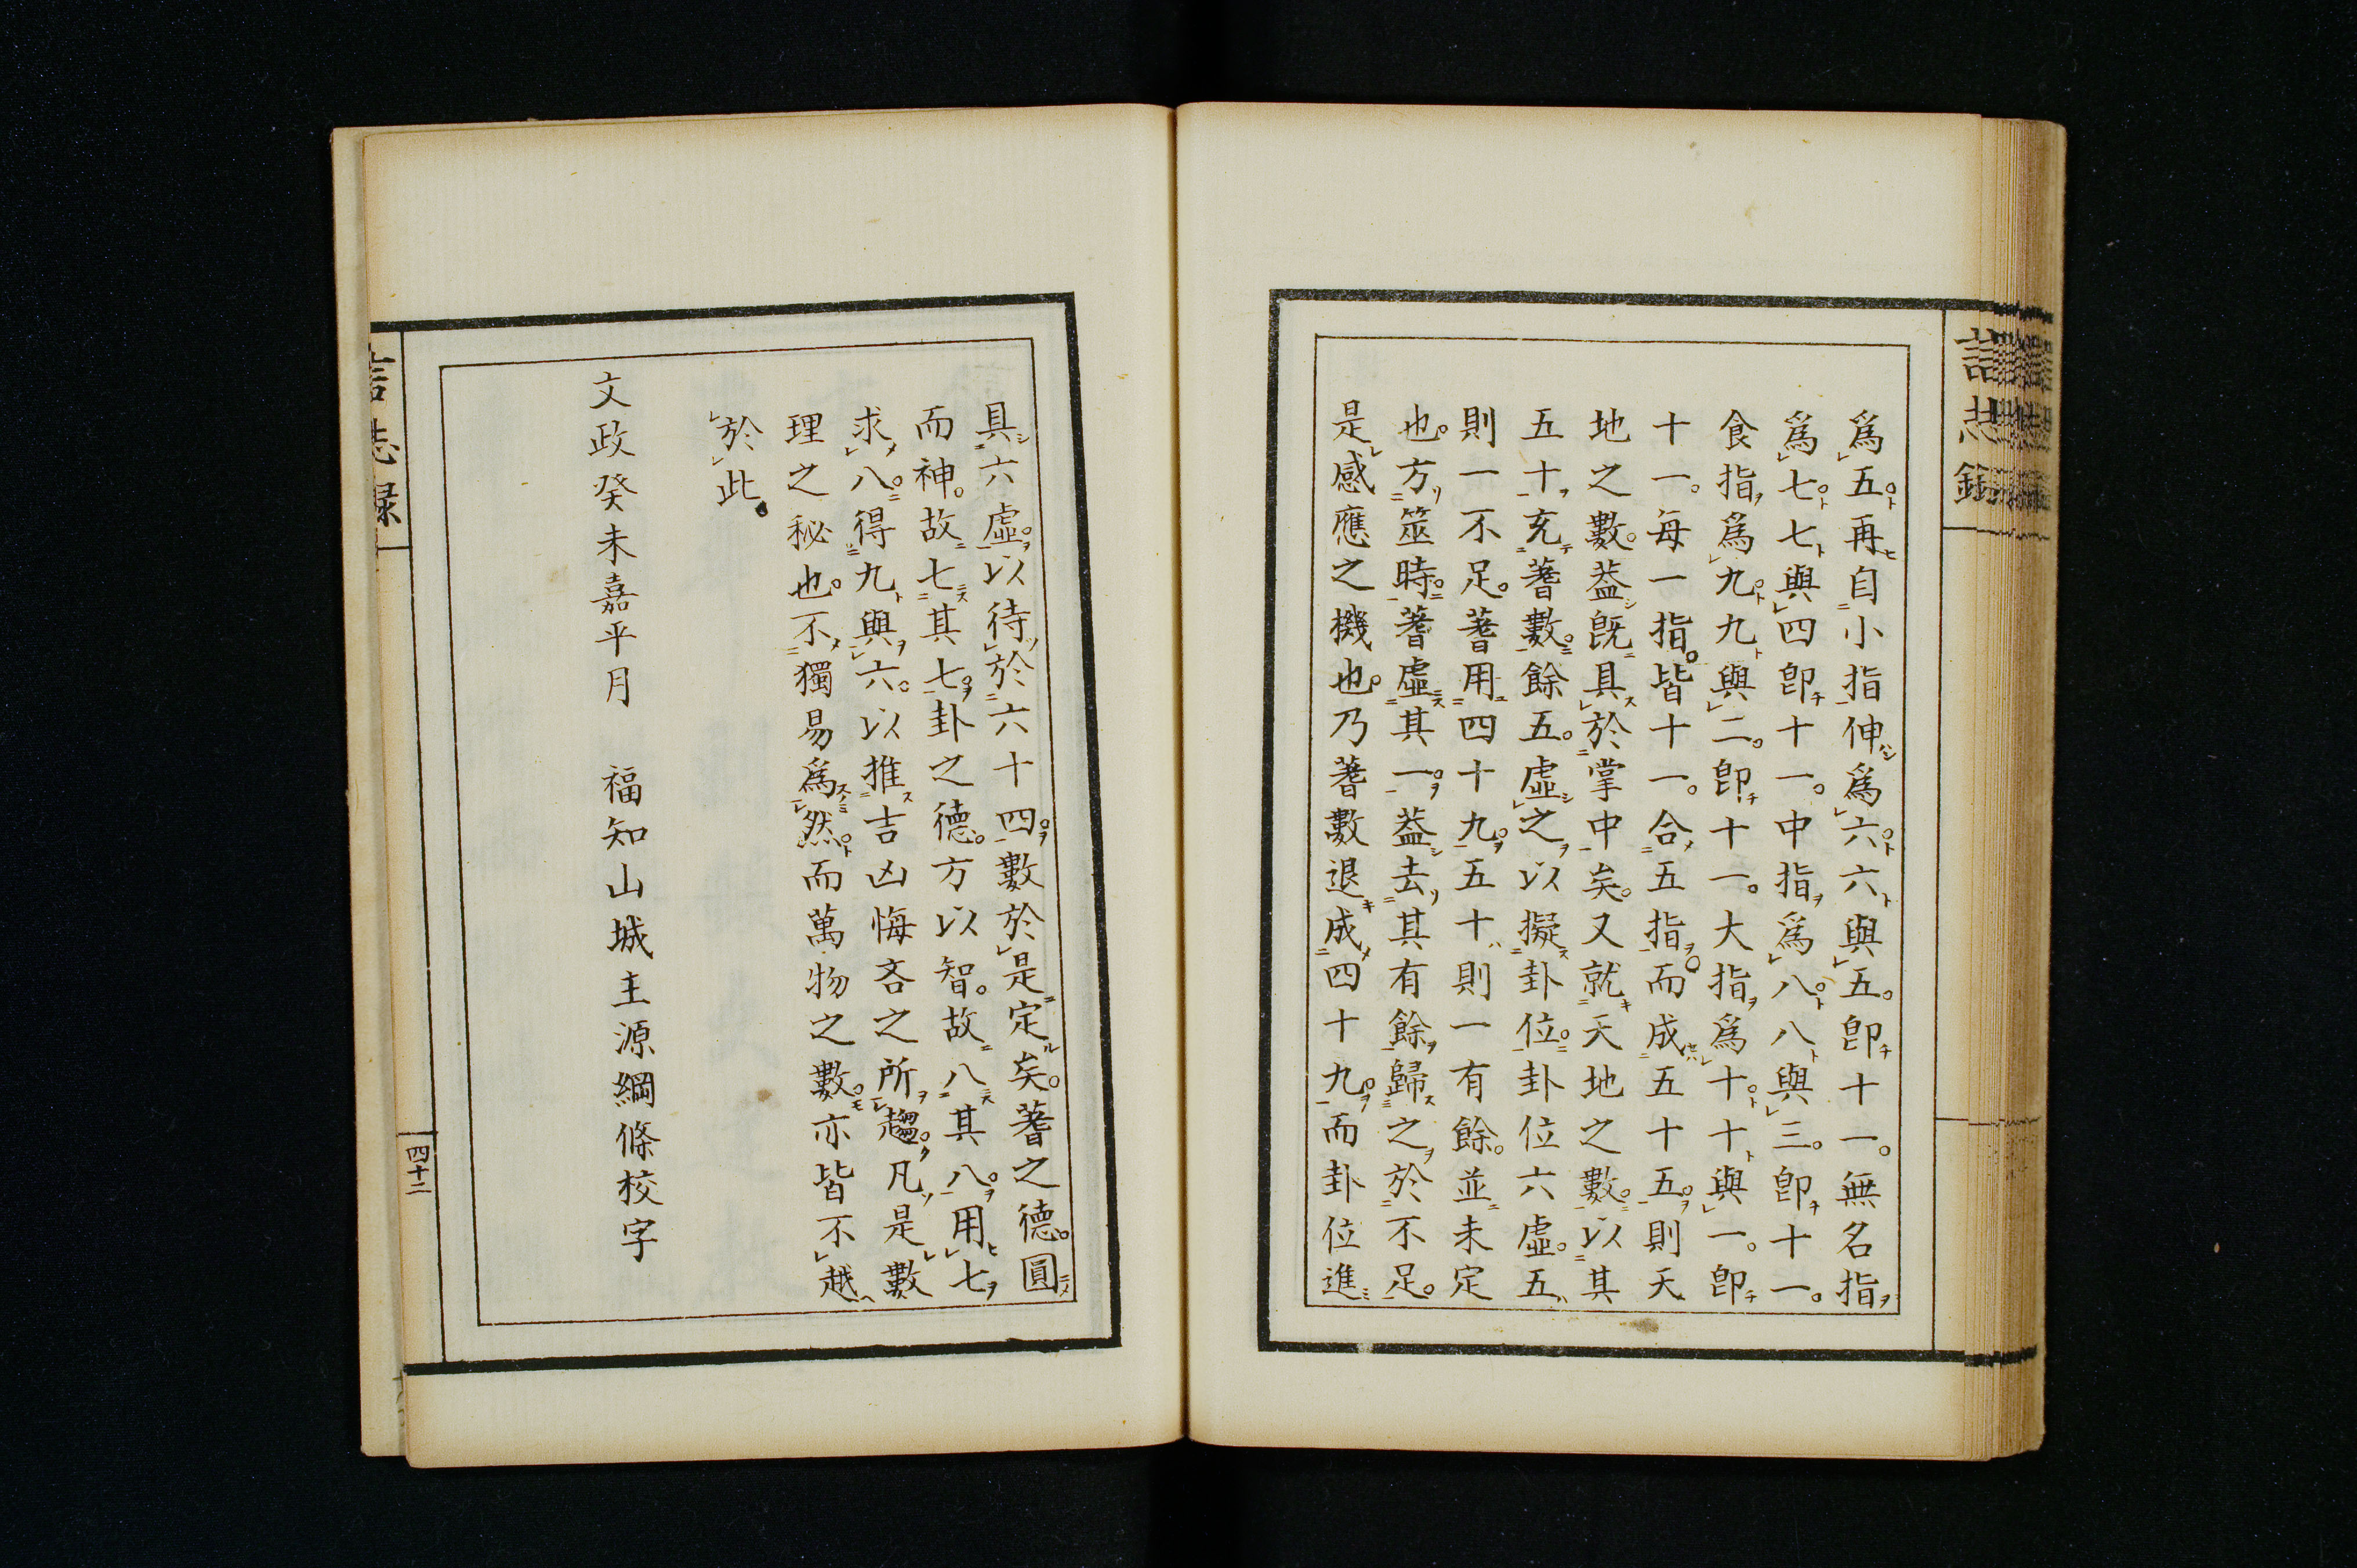 言志録
爲五。再自小指伸爲六。六與五。卽十一。無名指
爲七。七與四卽十一。中指爲八。八與三。卽十一。
食指爲九。九與二。卽十一。大指爲十。十與一。卽
十一。每一指。皆十一。合五指。而成五十五。則天
地之數。葢既具於掌中矣。又就天地之數。以其
五十充蓍數。餘五。虛之以擬卦位。卦位六虛。五
則一不足。蓍用四十九。五十則一有餘。並未定
也。方筮時。蓍虛其一。葢去其有餘歸之於不足。
是感應之機也。乃蓍數退成四十九。而卦位進
具六虛。以待於六十四。數於是定矣。蓍之德。圓
而神。故七其七。卦之德。方以智。故八其八。用七
求八。得九與六。以推吉凶悔吝之所趨。凡是數
理之秘也。不獨易爲然。而萬物之數。亦皆不越
於此。
文政癸未嘉平月 福知山城主源綱條校字
言志録
四十二